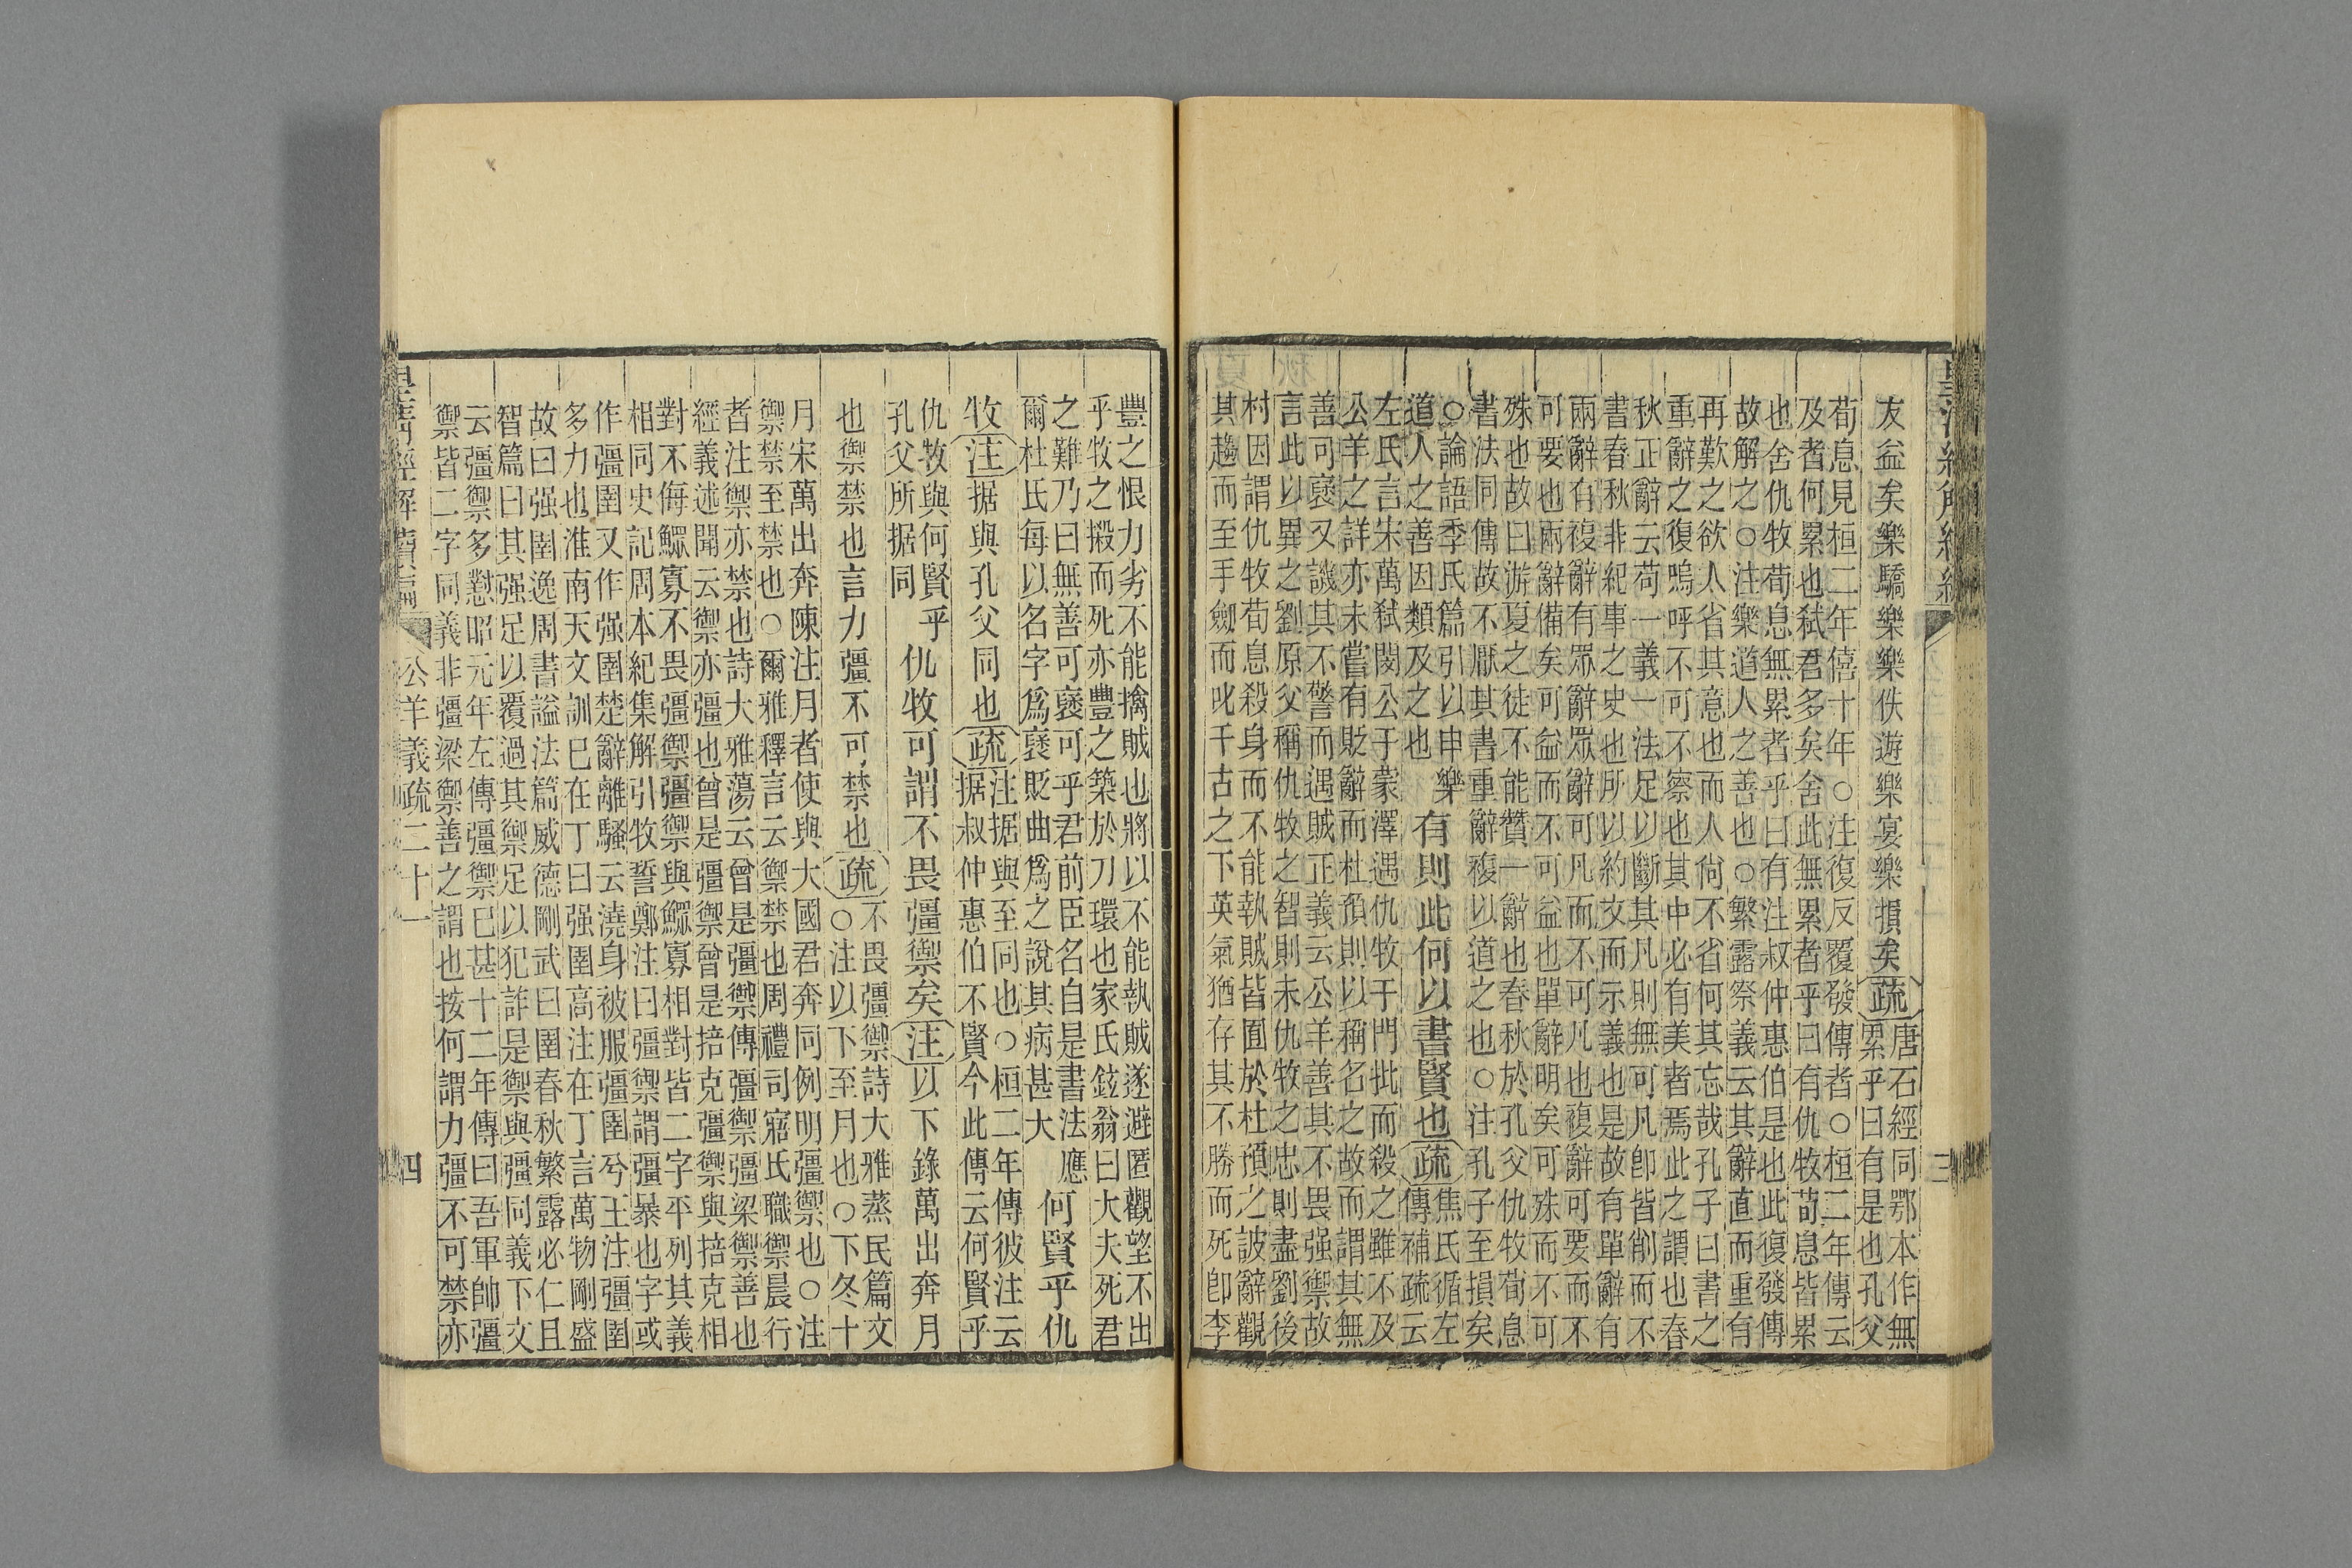 皇清經解續編
三
友益矣樂驕樂樂佚遊樂宴樂損矣疏
唐石經同鄂本作無
累乎曰有是也孔父
荀息見桓二年僖十年○注復反覆發傳者○桓二年傳云
及者何累也弒君多矣舍此無累者乎曰有仇牧荀息皆累
也舍仇牧荀息無累者乎曰有注叔仲惠伯是也此復發傳
故解之○注樂道人之善也○繁露祭義云其辭直而重有
再歎之欲人省其意也而人尙不省何其忘哉孔子曰書之
重辭之復嗚呼不可不察也其中必有美者焉此之謂也春
秋正辭云苟一義一法足以斷其凡則無可凡卽皆削而不
書春秋非紀事之史也所以約文而示義也是故有單辭有
兩辭有複辭有眾辭眾辭可凡而不可凡也複辭可要而不
可要也兩辭備矣可益而不可益也單辭明矣可殊而不可
殊也故曰游夏之徒不能贊一辭也春秋於孔父仇牧荀息
書法同傳故不厭其書重辭複以道之也○注孔子至損矣
○論語季氏篇引以申樂
道人之善因類及之也
有則此何以書賢也疏
焦氏循左
傳補疏云
左氏言宋萬弒閔公于蒙澤遇仇牧于門批而殺之雖不及
公羊之詳亦未嘗有貶辭而杜預則以稱名之故而謂其無
善可褒又譏其不警而遇賊正義云公羊善其不畏强禦故
言此以異之劉原父稱仇牧之智則未仇牧之忠則盡劉後
村因謂仇牧荀息殺身而不能執賊皆囿於杜預之詖辭觀
其趨而至手劒而叱千古之下英氣猶存其不勝而死卽李
豐之恨力劣不能擒賊也將以不能執賊遂避匿觀望不出
乎牧之搬而死亦豐之築於刀環也家氏鉉翁曰大夫死君
之難乃曰無善可褒可乎君前臣名自是書法應
爾杜氏每以名字爲褒貶曲爲之說其病甚大
何賢乎仇
牧注据與孔父同也疏
注据與至同也○桓二年傳彼注云
据叔仲惠伯不賢今此傳云何賢乎
仇牧與何賢乎
孔父所据同
仇牧可謂不畏彊禦矣注以下錄萬出奔月
也禦禁也言力彊不可禁也疏
不畏彊禦詩大雅蒸民篇文
○注以下至月也○下冬十
月宋萬出奔陳注月者使與大國君奔同例明彊禦也○注
禦禁至禁也○爾雅釋言云禦禁也周禮司寤氏職禦晨行
者注禦亦禁也詩大雅蕩云曾是彊禦傳彊禦彊梁禦善也
經義述聞云禦亦彊也曾是彊禦曾是掊克彊禦與掊克相
對不侮鰥寡不畏彊禦彊禦與鰥寡相對皆二字平列其義
相同史記周本紀集解引牧誓鄭注曰彊禦謂彊暴也字或
作彊圉又作强圉楚辭離騷云澆身被服彊圉兮王注彊圉
多力也淮南天文訓巳在丁曰强圉高注在丁言萬物剛盛
故曰强圉逸周書謚法篇威德剛武曰圉春秋繁露必仁且
智篇曰其强足以覆過其禦足以犯詐是禦與彊同義下文
云彊禦多懟昭元年左傳彊禦已甚十二年傳曰吾軍帥彊
禦皆二字同義非彊梁禦善之謂也按何謂力彊不可禁亦
皇清經解續編
公羊義疏二十一
四